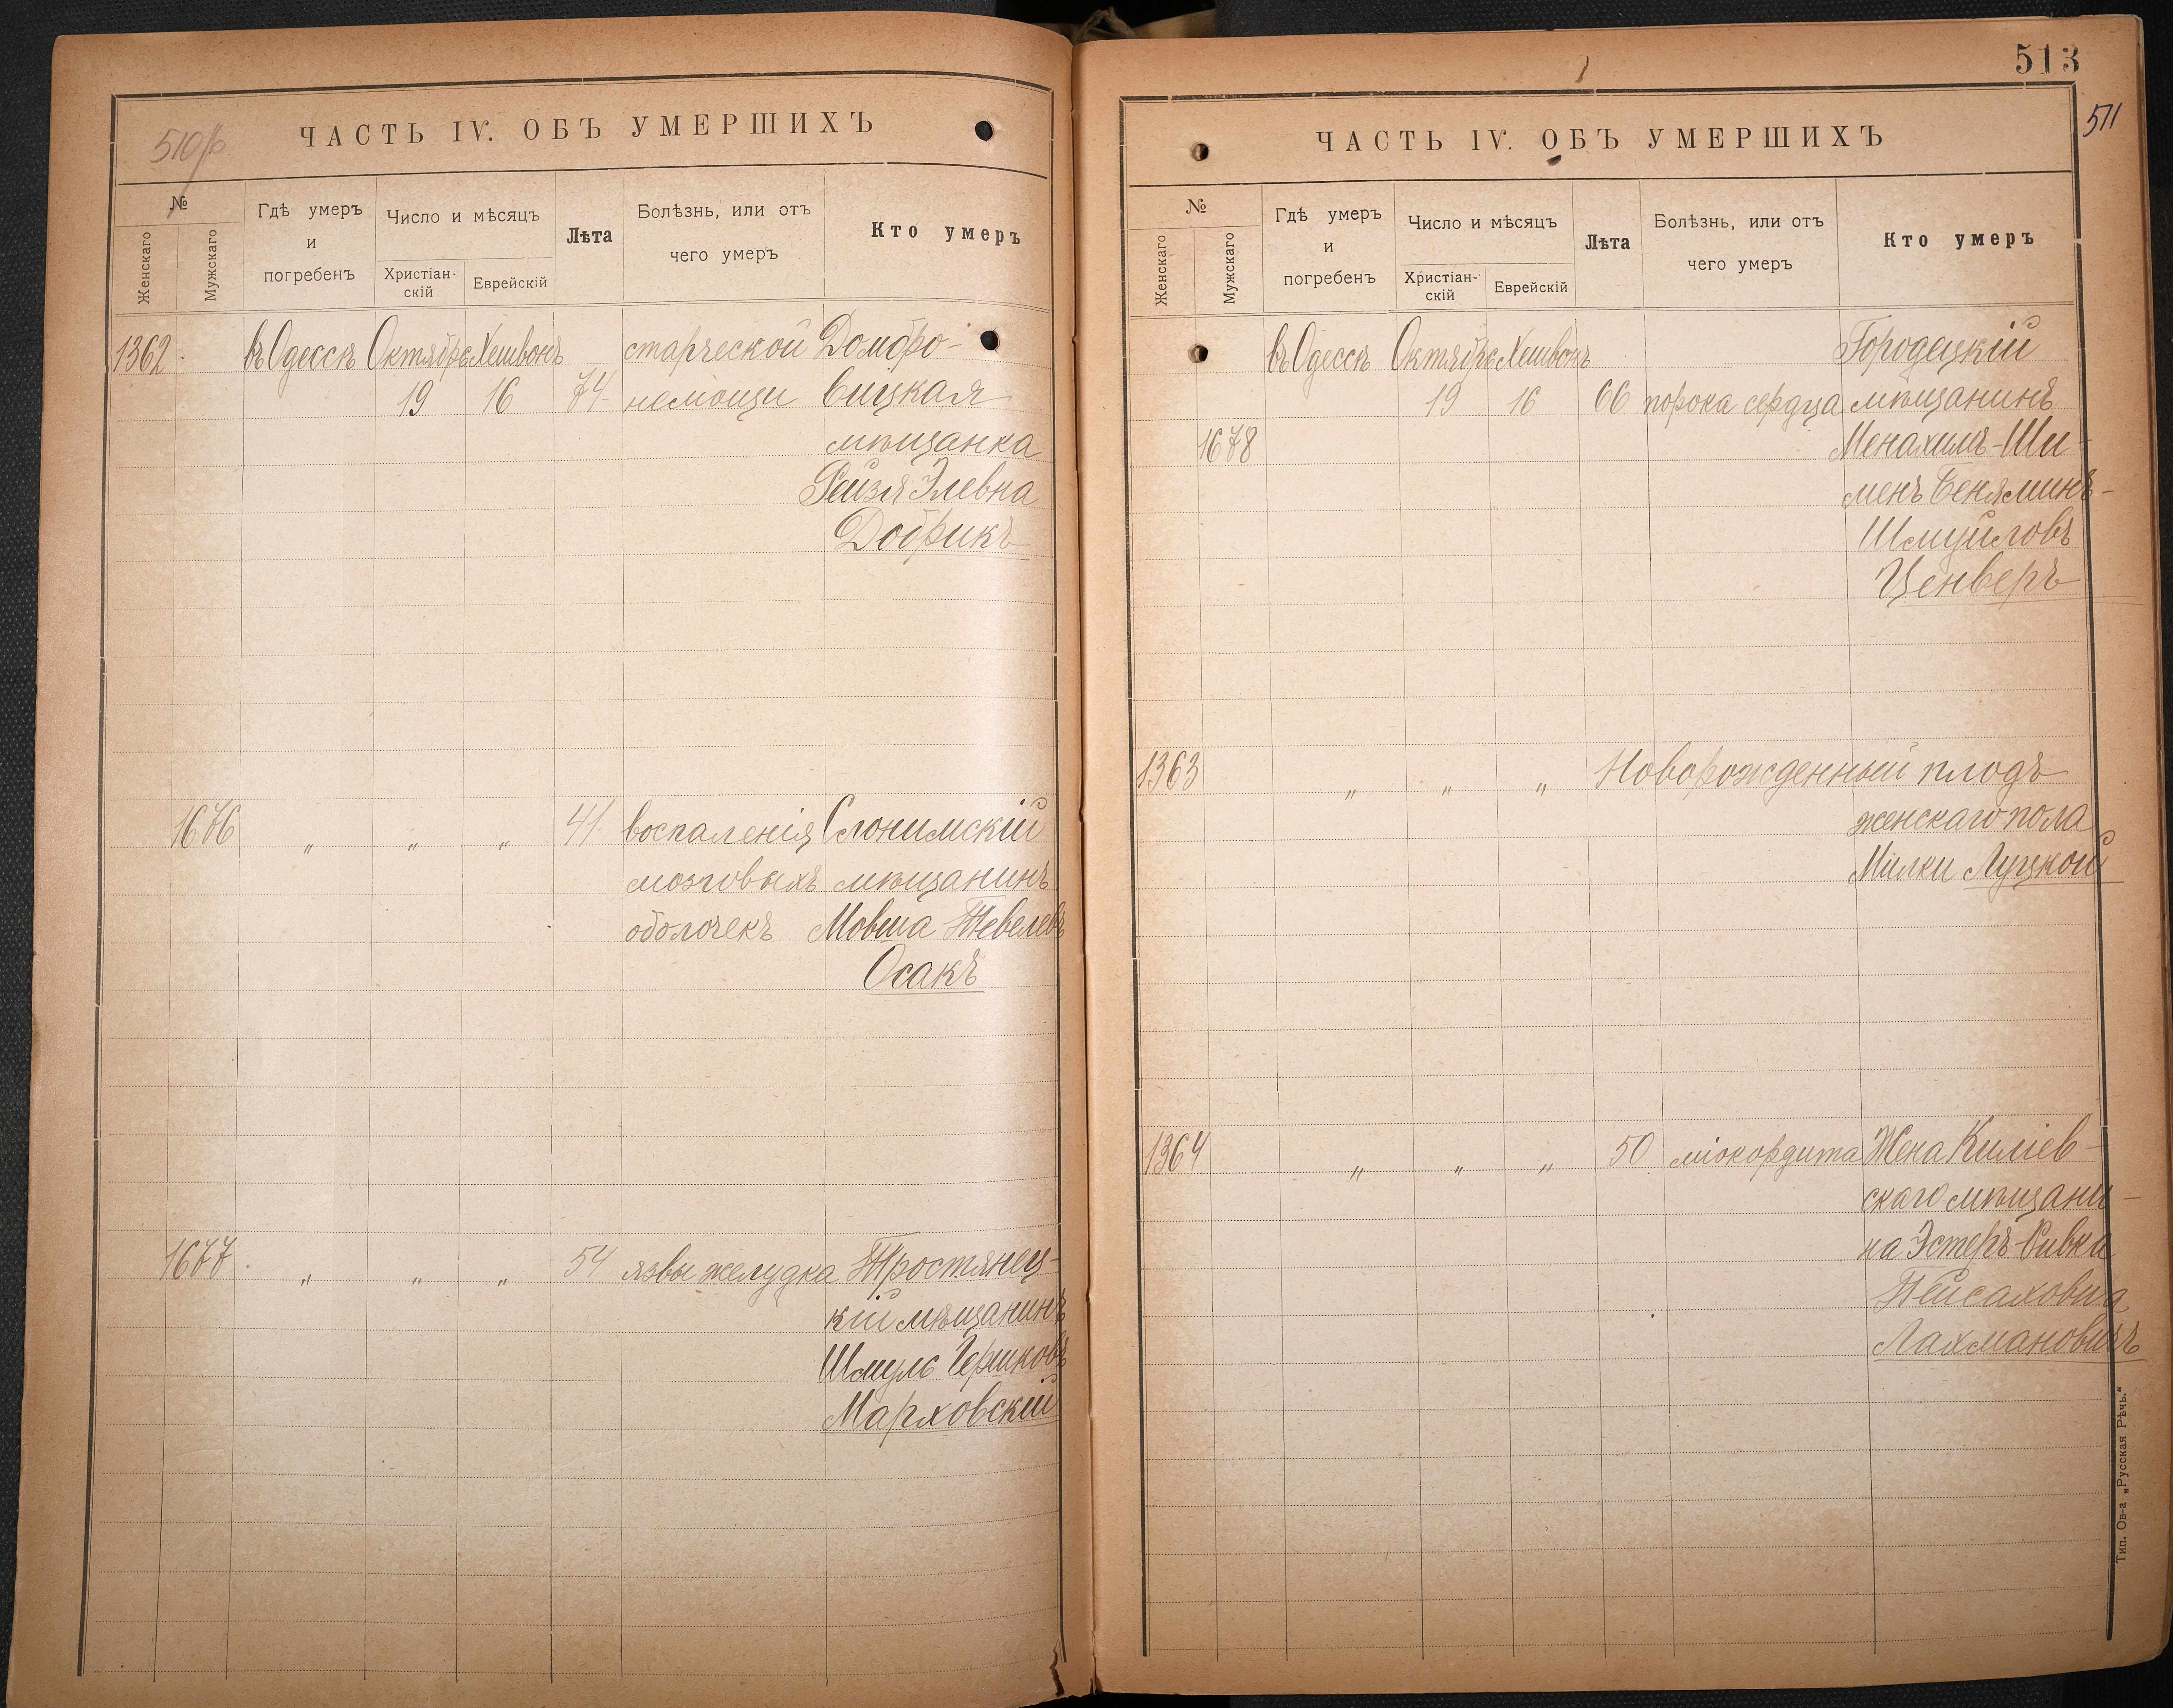 510 об
ЧАСТЬ IV. ОБЪ УМЕРШИХЪ
№
Женскаго
Мужскаго
Гдѣ умеръ
и
погребенъ
Число и мѣсяцъ
Христіан-
скій
Еврейскій
Лѣта
Болѣзнь, или отъ
чего умеръ
Кто умеръ
1362 въ Одессѣ Октября Хешвонъ старческой Домбро-
19 16 74 немощи вицкая
мѣщанка
Рейзя Элевна
Добрикъ
1676 " " " 41 воспаленія Слонимскій
мозговыхъ мѣщанинъ
оболочекъ Мовша Тевелевъ
Осакъ
1677 " " " 54 язвы желудка Тростянец-
кій мѣщанинъ
Шмуль Гершковъ
Марховскій
513
511
ЧАСТЬ IV. ОБЪ УМЕРШИХЪ
№
Женскаго
Мужскаго
Гдѣ умеръ
и
погребенъ
Число и мѣсяцъ
Христіан-
скій
Еврейскій
Лѣта
Болѣзнь, или отъ
чего умеръ
Кто умеръ
въ Одессѣ Октября Хешвонъ Городецкій
19 16 66 порока сердца мѣщанинъ
1678 Менахимъ-Ши-
менъ Беняминъ-
Шмуйловъ
Ценверъ
1363 " " " Новорожденный плодъ
женскаго пола
Милки Луцкой
1364 " " " 50 міокордита Жена Киліев-
скаго мѣщани-
на Эстеръ-Ривка
Пейсаховна
Лахмановичъ
Тип. Ов-а „Русская Рѣчь.“